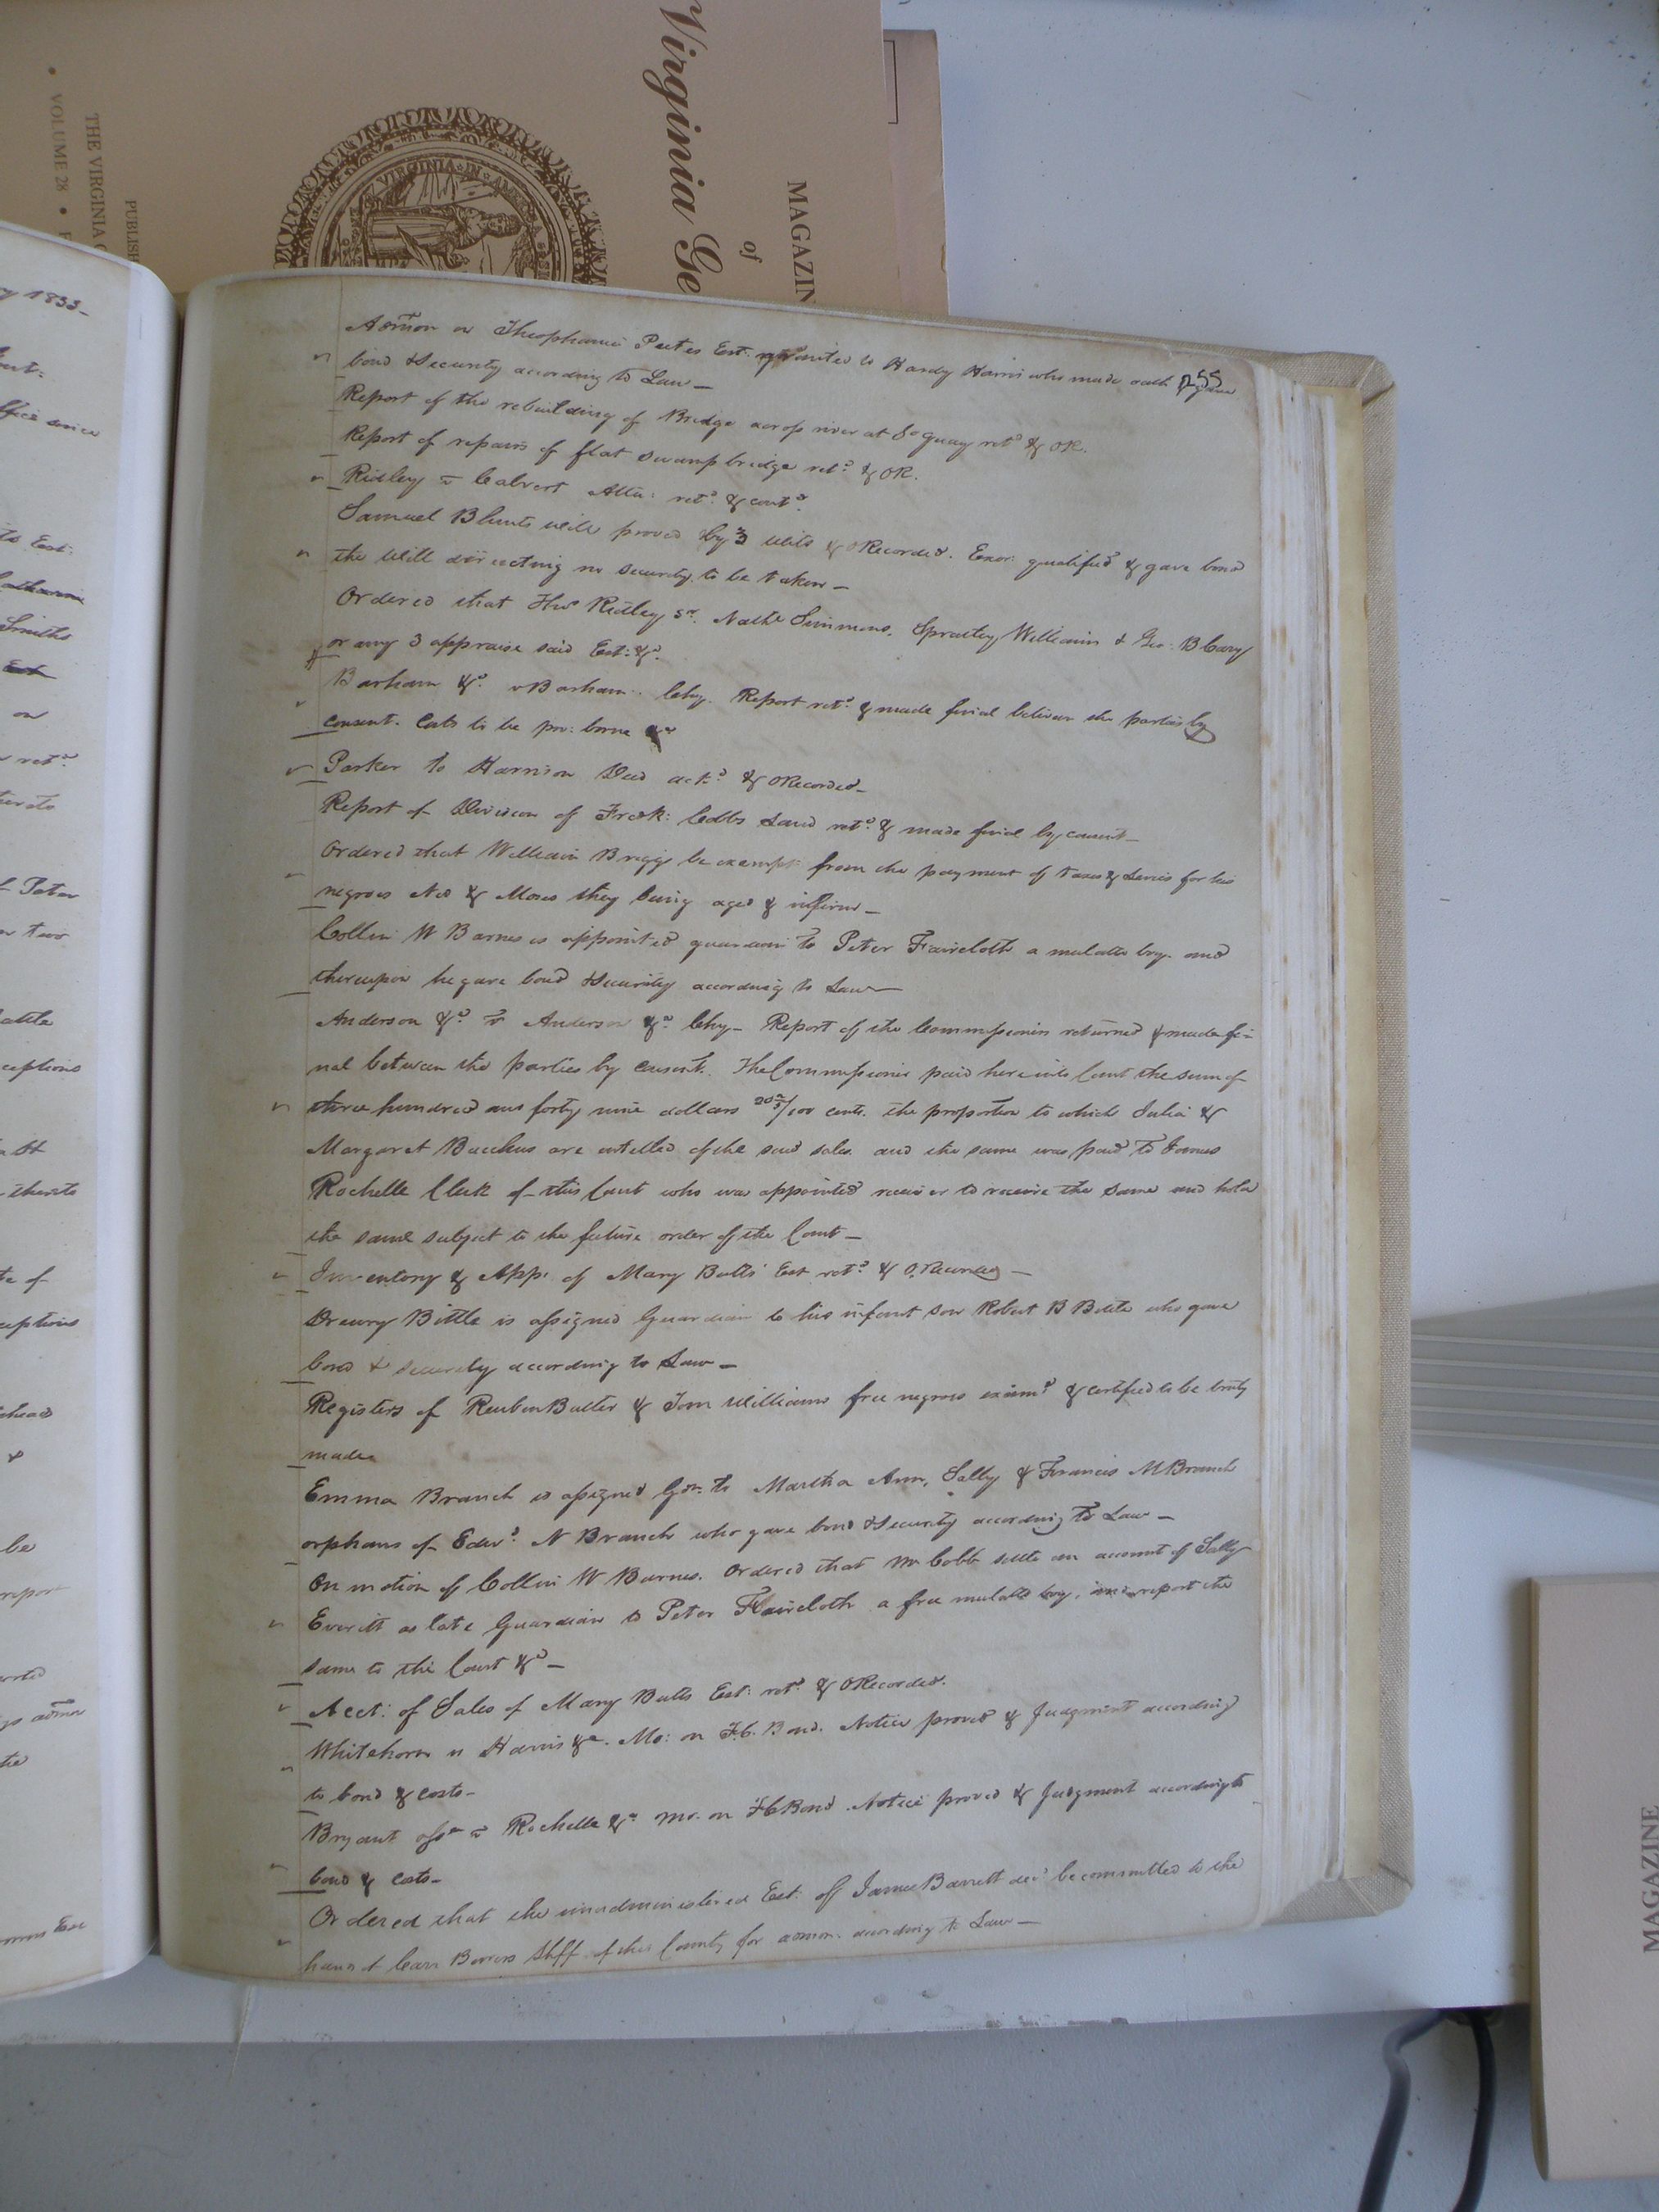 Virginia Ge
of
MAGAZIN
PUBLISH
THE VIRGINIA
VOLUME 28
VIRGINIA IN
y 1833-
255
Admon on Theophani Peetes Est: granted to Hardy Harris who made oath & gave
bond & Security according to Law -
Report of the rebuilding of Bridge across river at So quay retd & OR.
Report of repairs of flat swamp bridge retd & OR.
Ridley v Calvert Atta: retd & contd.
Samuel Blunts will proved by 3 wits & ORecorded. Exor: qualified & gave bond
the will directing no security to be taken -
Ordered that Thos Ridley Sr. Nathl Simmons, Spratley Williams & Geo: B Cary
or any 3 appraise said Est: &c.
Barham &c. v Barham. Chy. Report retd. & made final between the parties by
consent. Costs to be pro: borne &c
Parker to Harrison Deed ackd & ORecorded -
Report of Division of Fredk: Cobbs Land retd. & made final by consent -
Ordered that William Briggs be exempt from the payment of taxes & Levies for his
negroes Ned & Moses they being aged & infirm -
Collin W Barnes is appointed guardian to Peter Faircloth a mulatto boy. and
thereupon he gave bond & Security according to Law -
Anderson &c. v Anderson &c. Chy - Report of the Commissioners returned & made fi-
nal between the parties by consent. The Commissioner paid here into Court the sum of
three hundred and forty nine dollars /100 cents. the proportion to which Julia &
Margaret Bacchus are entitled of the said sales and the same was paid to James
Rochelle Clerk of this Court who was appointed receiver to receive the same and hold
the same subject to the future order of the Court -
Inventory & App: of Mary Butts Est retd. & O.Recorded -
Drewry Bittle is assigned Guardian to his infant son Robert B Bittle who gave
bond & security according to Law -
Registers of Reuben Butler & Tom Williams free negroes examd & certified to be truly
made
Emma Branch is assigned Gdn. to Martha Ann, Sally & Francis M Branch
orphans of Edwd. N Branch who gave bond & Security according to Law -
On motion of Collin W Barnes. Ordered that Mr Cobb settle an account of Sally
Everitt as late Guardian to Peter Faircloth a free mulatto boy, and report the
same to the Court &c -
Acct: of Sales of Mary Butts Est: retd. & ORecorded.
Whitehorn v Harris &c. Mo: on F.C. Bond. Notice proved & Judgment according
to bond & costs -
Bryant asse v Rochelle &c. Mo. on FC Bond. Notice proved & Judgment according to
bond & costs -
Ordered that the unadministered Est: of James Barrett decd be committed to the
hands of Carr Bowers Shff. of this County for admon. according to Law -
MAGAZINE